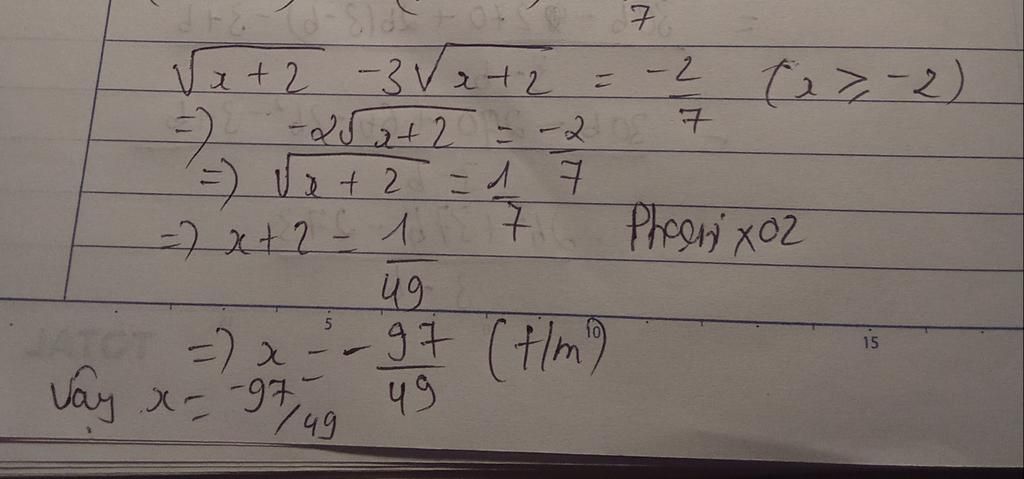 7
√x + 2 - 3√x + 2 = -2/7 (x ≥ -2)
=) -2√x+2 = -2/7
=) √x + 2 = 1/7
=) x + 2 = 1/49 Phoenix02
5 10 15
=) x = -97/49 (t/m)
Vậy x = -97/49